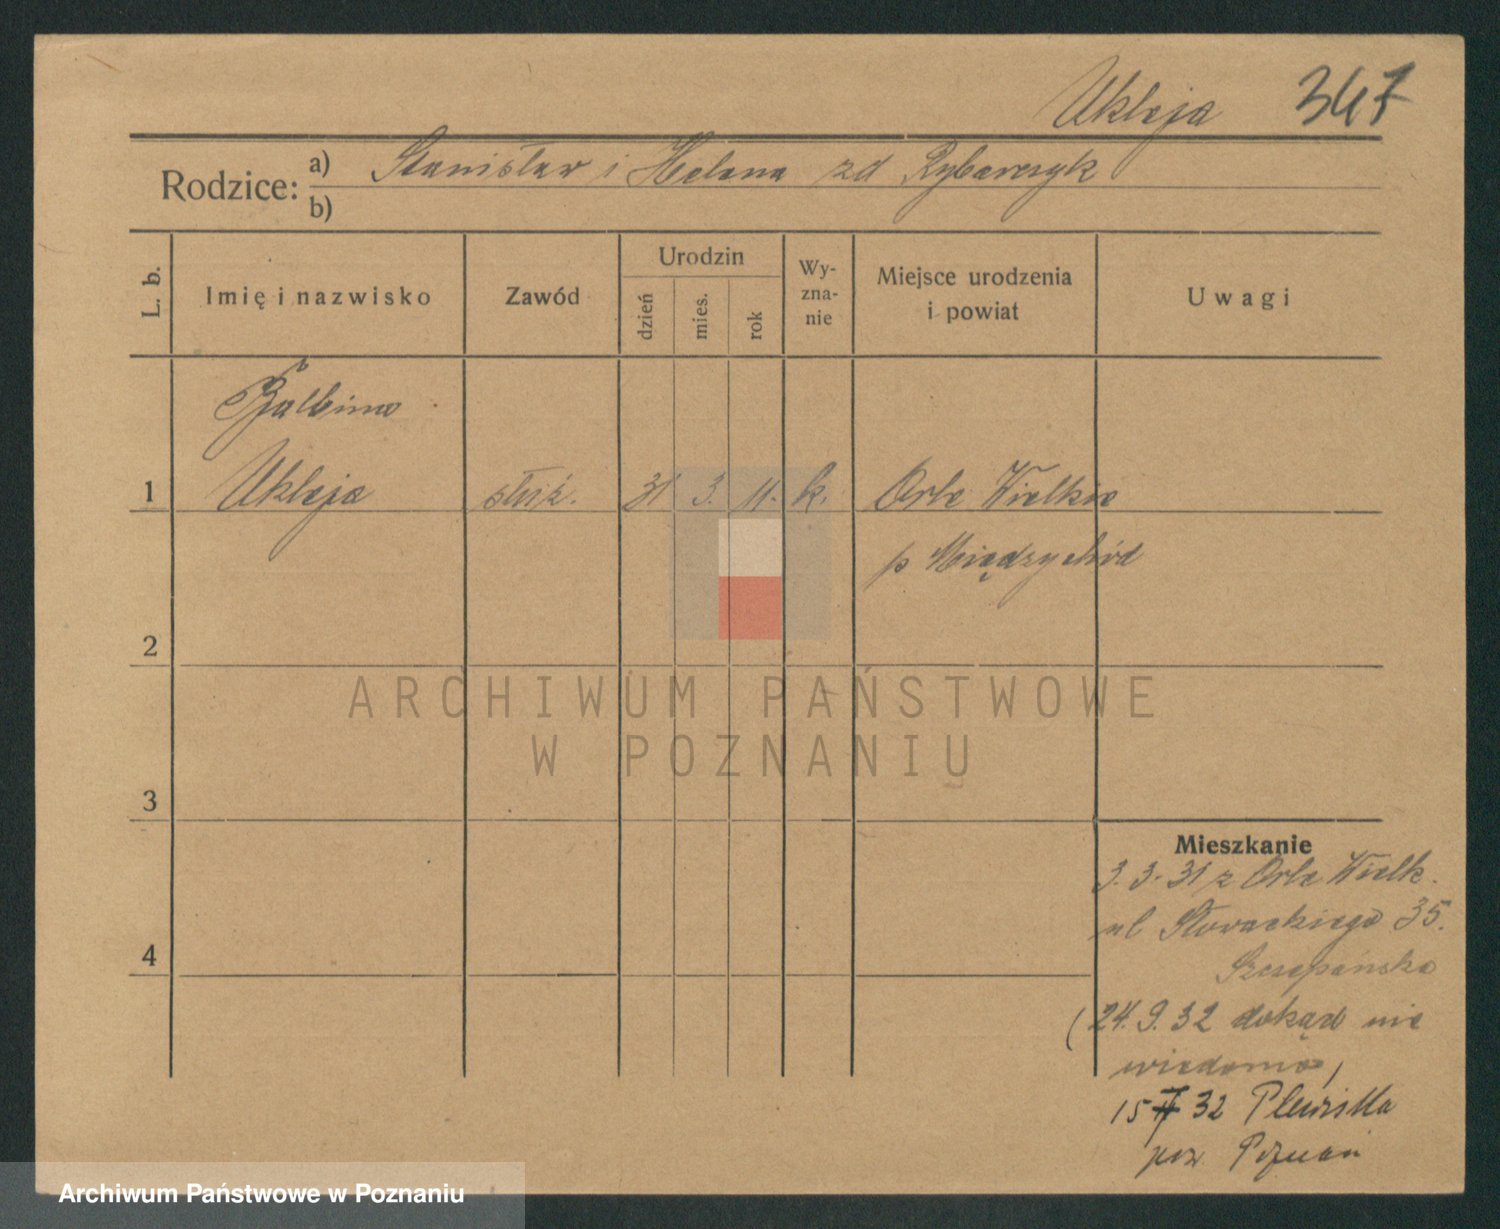 Ukleja 347
Rodzice: a) Stanisław i Helena zd Rybarczyk
b)
L. b. Imię i nazwisko Zawód Urodzin dzień mies. rok Wy-zna-nie Miejsce urodzenia i powiat Uwagi
Balbina
1 Ukleja służ. 31 3. 11. k. Orle Wielkie
p Międzychód
2
ARCHIWUM PAŃSTWOWE
W POZNANIU
3
Mieszkanie
3.3.31 z Orle Wielk.
ul Słowackiego 35.
4
Szczepańska
(24.9.32 dokąd nie
wiadomo)
15 32 Plewiska
pow. Poznań
Archiwum Państwowe w Poznaniu